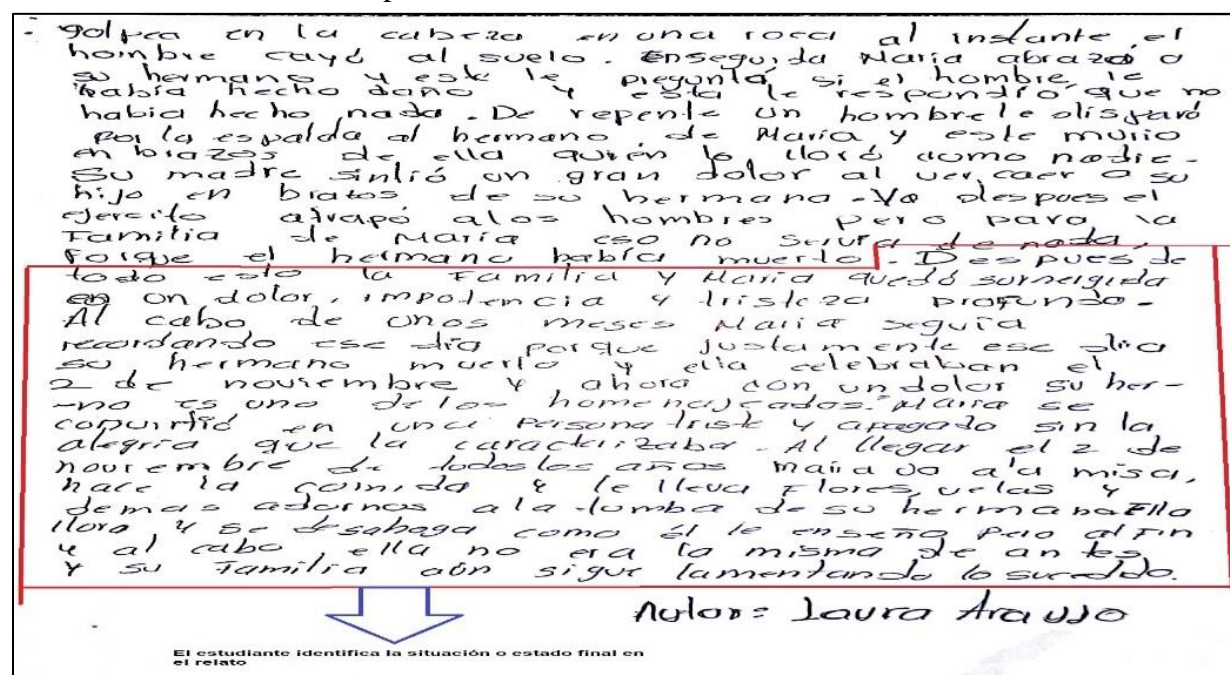 golpea en la cabeza en una roca al instante el
hombre cayó al suelo. Enseguida Maria abrazó a
su hermano y este le preguntá si el hombre le
había hecho daño y esta le respondió que no
habia hecho nada. De repente un hombre le disparó
por la espalda al hermano de Maria y este murio
en brazos de ella quien lo lloró como nadie-
Su madre sintió un gran dolor al ver caer a su
hijo en brazos de su hermana. Ya despues el
ejercito atrapó a los hombres pero para la
Familia de Maria eso no servia de nada,
Porque el hermano había muerto. Despues de
todo esto la Familia y Maria quedó sumergida
en un dolor, impotencia y tristeza profundo-
Al cabo de unos meses Maria seguía
recordando ese día porque justamente ese dia
su hermano muerto y ella celebraban el
2 de noviembre y ahora con un dolor su her-
-no es uno de los homenajeados. Maria se
convirtió en una persona triste y apagado sin la
alegria que la caracterizaba. Al llegar el 2 de
noviembre de todos los años maria va a la misa,
hace la comida y le lleva Flores, velas y
demas adornos a la tumba de su hermano Ella
llora y se desahoga como él le enseño pero al Fin
y al cabo ella no era la misma de antes
y su Familia aún sigue lamentando lo sucedido.
Autor= Laura Araujo
El estudiante identifica la situación o estado final en
el relato